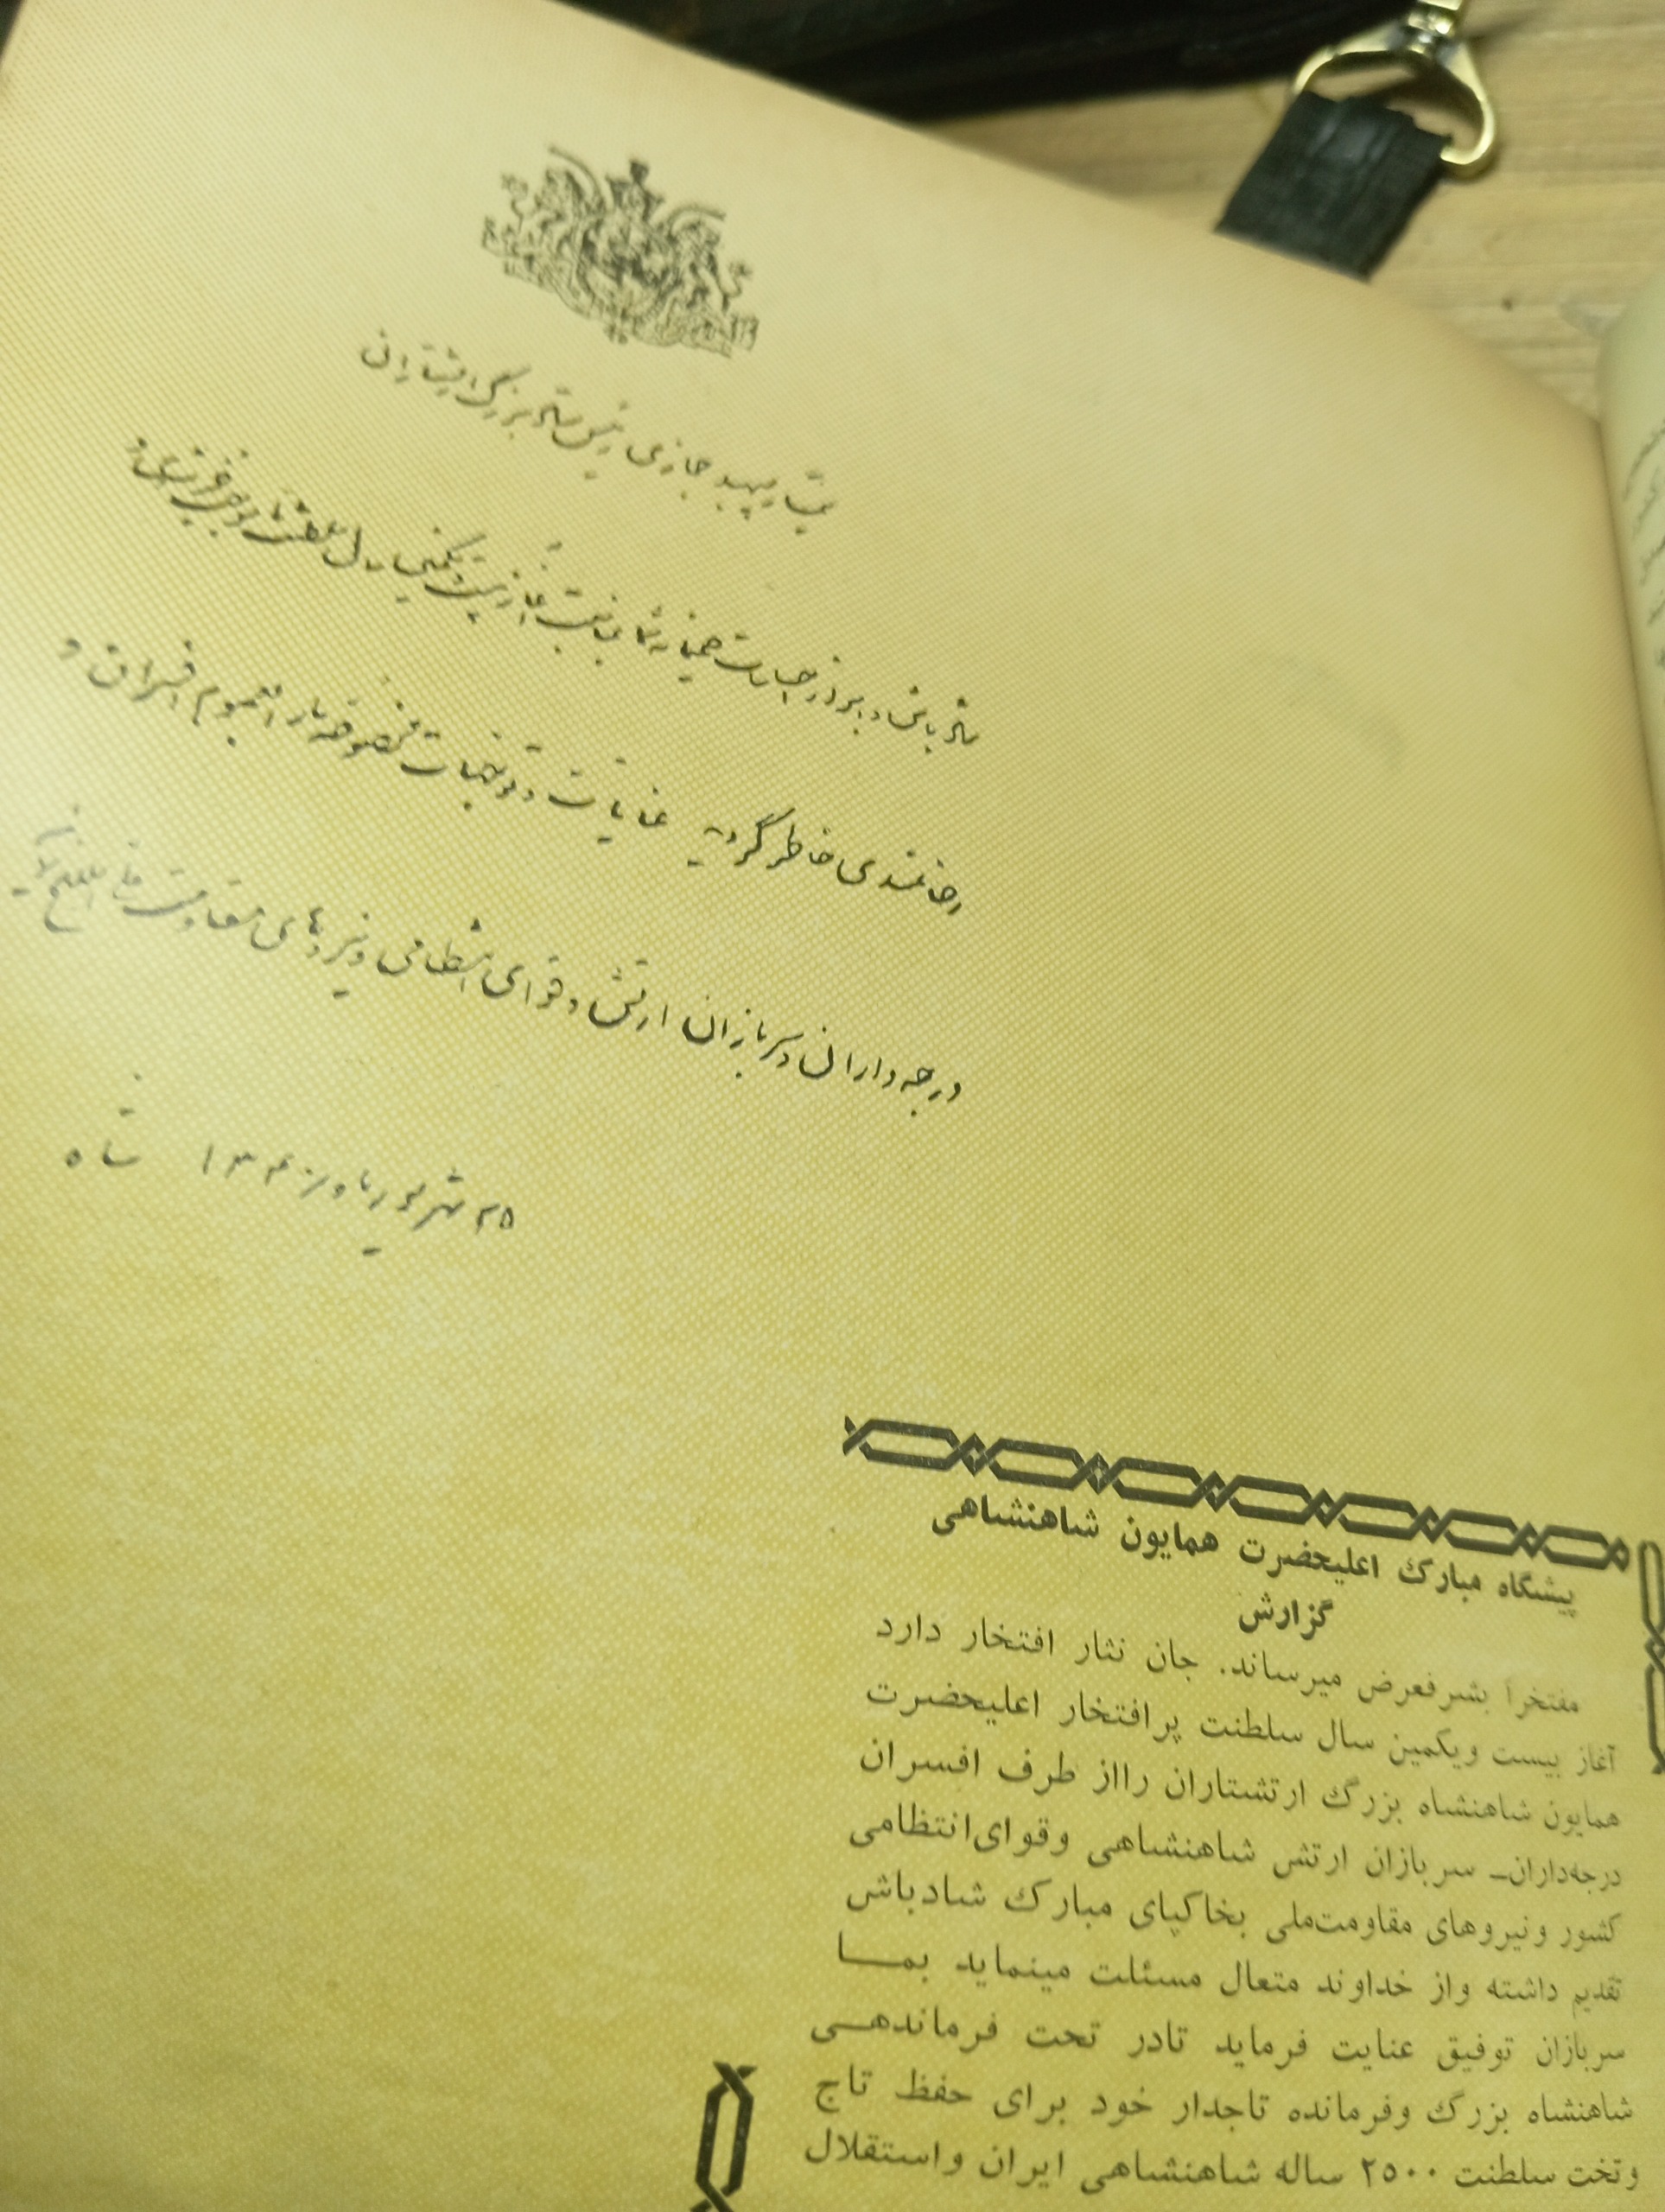 تیمسار سپهبد حجازی رئیس ستاد بزرگ ارتشتاران
شادباش و ابراز احساسات صمیمانه شما بمناسبت آغاز بیست و یکمین سال سلطنت ما موجب خرسندی و
رضامندی خاطر گردید عنایات و توجهات مخصوص ما را بعموم افسران و
درجه‌داران و سربازان ارتش و قوای انتظامی و نیروهای مقاومت ملی ابلاغ نمائید
۲۵ شهریور ماه ۱۳۴۰ شاه
پیشگاه مبارک اعلیحضرت همایون شاهنشاهی
گزارش
مفتخراً بشرفعرض میرساند. جان نثار افتخار دارد
آغاز بیست ویکمین سال سلطنت پرافتخار اعلیحضرت
همایون شاهنشاه بزرگ ارتشتاران رااز طرف افسران
درجه‌داران- سربازان ارتش شاهنشاهی وقوای‌انتظامی
کشور ونیروهای مقاومت‌ملی بخاکپای مبارک شادباش
تقدیم داشته واز خداوند متعال مسئلت مینماید بمـا
سربازان توفیق عنایت فرماید تادر تحت فرماندهی
شاهنشاه بزرگ وفرمانده تاجدار خود برای حفظ تاج
وتخت سلطنت ۲۵۰۰ ساله شاهنشاهی ایران واستقلال